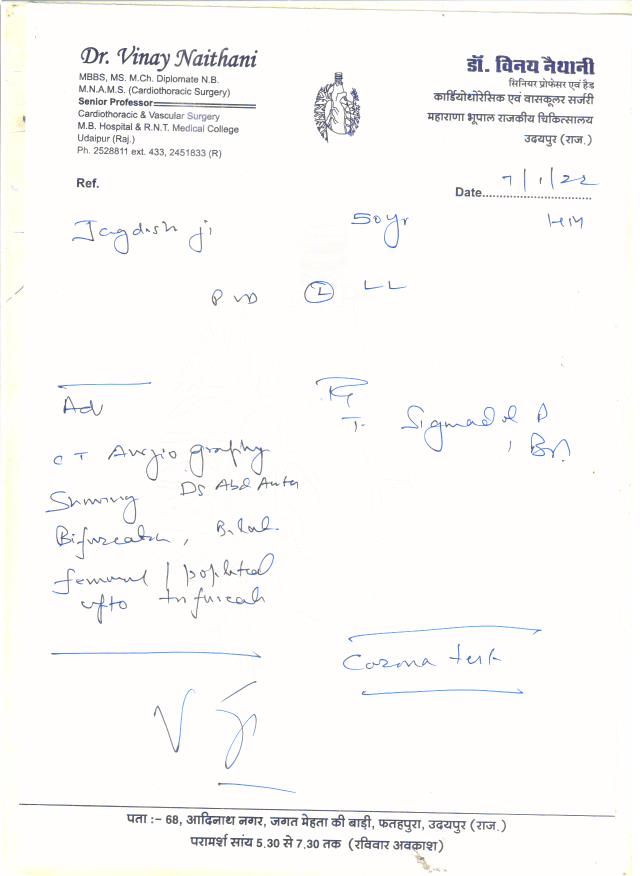 Dr. Vinay Naithani
MBBS, MS. M.Ch. Diplomate N.B.
M.N.A.M.S. (Cardiothoracic Surgery)
Senior Professor
Cardiothoracic & Vascular Surgery
M.B. Hospital & R.N.T. Medical College
Udaipur (Raj.)
Ph. 2528811 ext. 433, 2451833 (R)
डॉ. विनय नैथानी
सिनियर प्रोफेसर एवं हैड
कार्डियोथोरेसिक एवं वासकूलर सर्जरी
महाराणा भूपाल राजकीय चिकित्सालय
उदयपुर (राज.)
Ref.
Date 7/1/22
Jagdish ji 50yr
PVD L LL
Adv
CT Angiography
Showing Ds Abd Aorta
Bifurcation, Bilat.
femoral / popliteal
upto trifurcah
Rx
T. Sigmadol P
Corona test
पता :– 68, आदिनाथ नगर, जगत मेहता की बाड़ी, फतहपुरा, उदयपुर (राज.)
परामर्श सांय 5.30 से 7.30 तक (रविवार अवकाश)